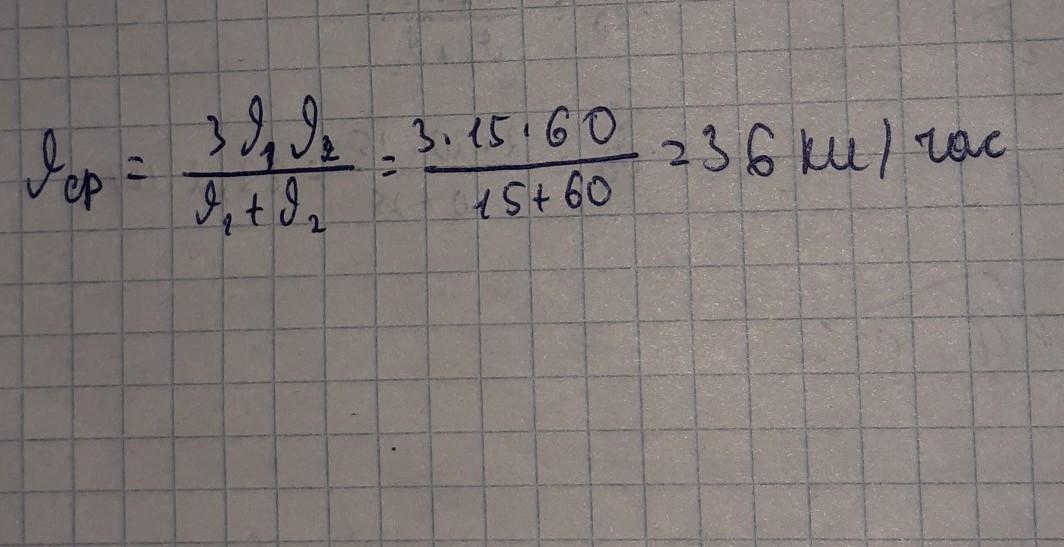 ϑср = 3ϑ₁ϑ₂ / ϑ₁+ϑ₂ = 3·15·60 / 15+60 = 36 км/час